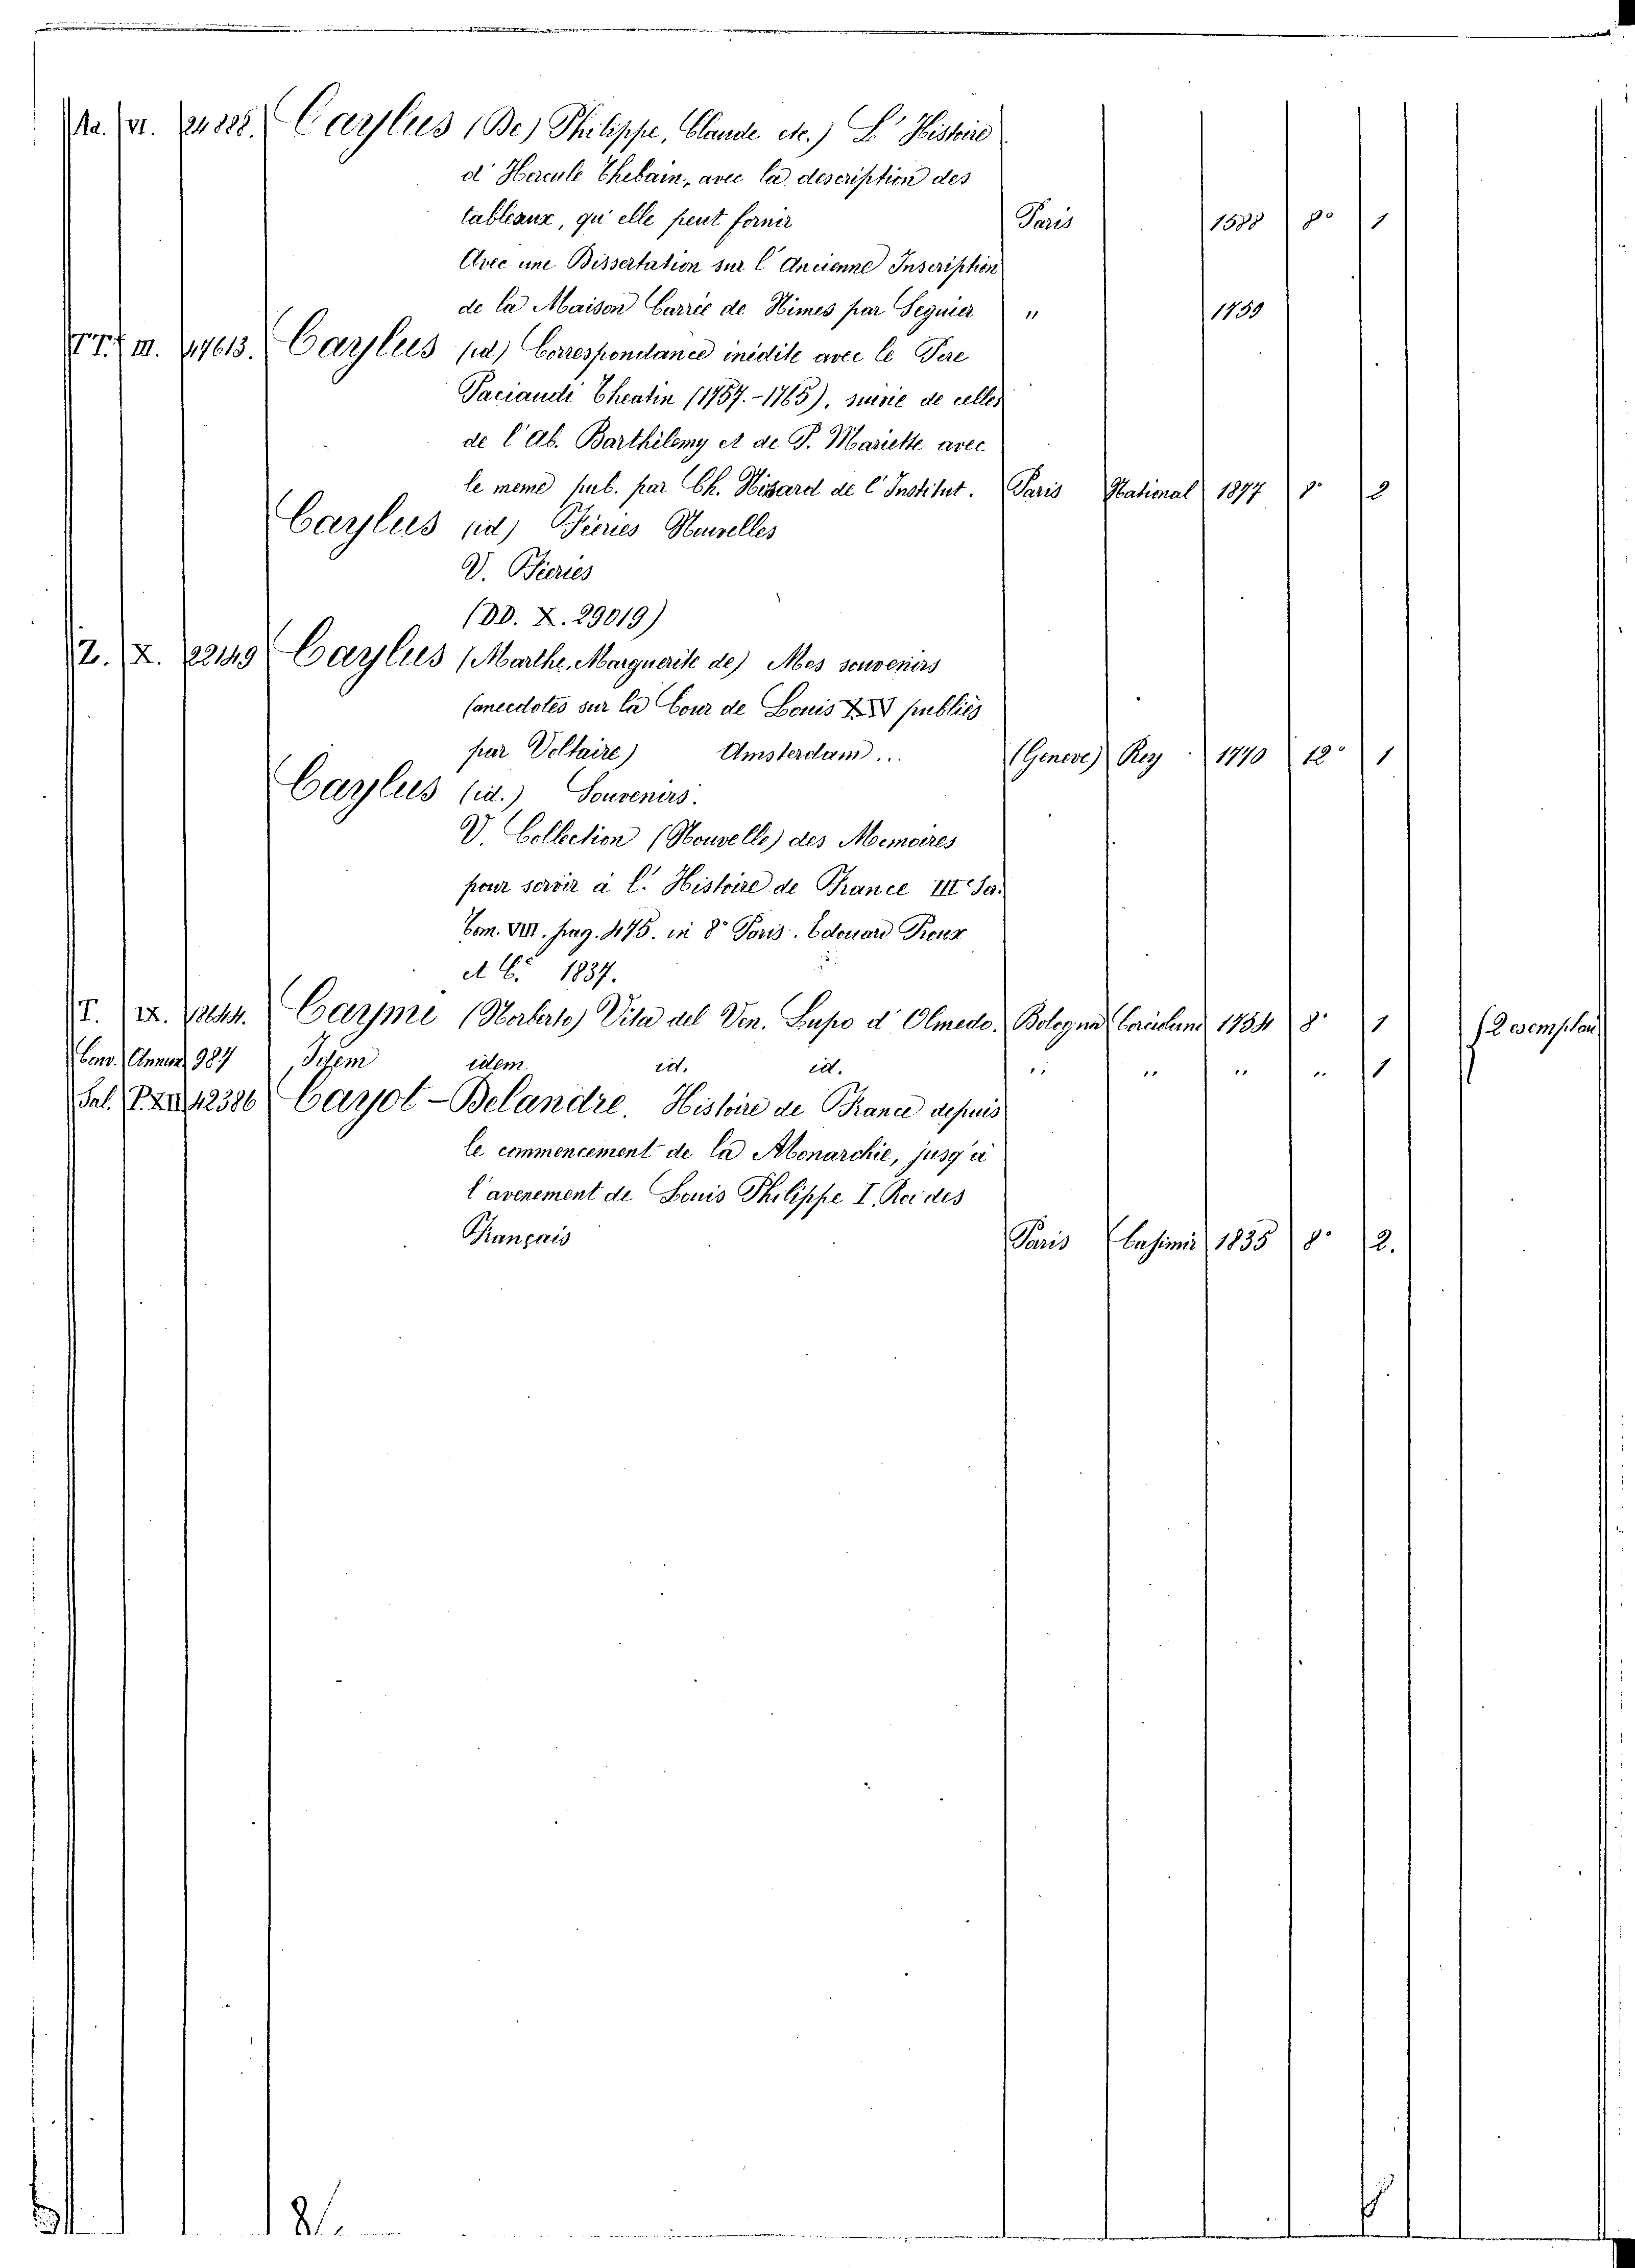 Aa. VI. 24888. Caylus (De) Philippe, Claude etc.) L' Histoire
d' Hercule Thebain, avec la description des
tableaux, qu' elle peut fornir Paris 1588 8° 1
Avec une Dissertation sur l' Ancienne Inscription
de la Maison Carrée de Nimes par Seguier " 1759
TT. III. 47613. Caylus (id) Correspondance inédite avec le Pere
Paciaudi Theatin (1757.-1765), suivie de celles
de l' Ab. Barthélemy et de P. Mariette avec
le meme pub. par Ch. Nisard de l' Institut. Paris National 1877 8° 2
Caylus (id) Féeries Nouvelles
V. Féeries
(DD. X. 29019)
Z. X. 22149 Caylus (Marthe, Marguerite de) Mes souvenirs
(anecdotes sur la Cour de Louis XIV publiés
par Voltaire) Amsterdam... (Geneve) Rey 1770 12° 1
Caylus (id.) Souvenirs.
V. Collection (Nouvelle) des Memoires
pour servir a l' Histoire de France III Se.
Tom. VIII. pag. 475. in 8° Paris. Edouard Proux
et C. 1837.
T. IX. Cayme (Norberto) Vita del Ven. Lupo d' Olmedo. Bologna 1754 8° 1 2 esemplari
Conv. Annun 987 Idem idem id. id. " " " " 1
Sal. P.XII 42386 Cayot-Delandre. Histoire de France depuis
le commencement de la Monarchie, jusq'à
l'avenement de Louis Philippe I. Roi des
Français Paris Casimir 1835 8° 2.